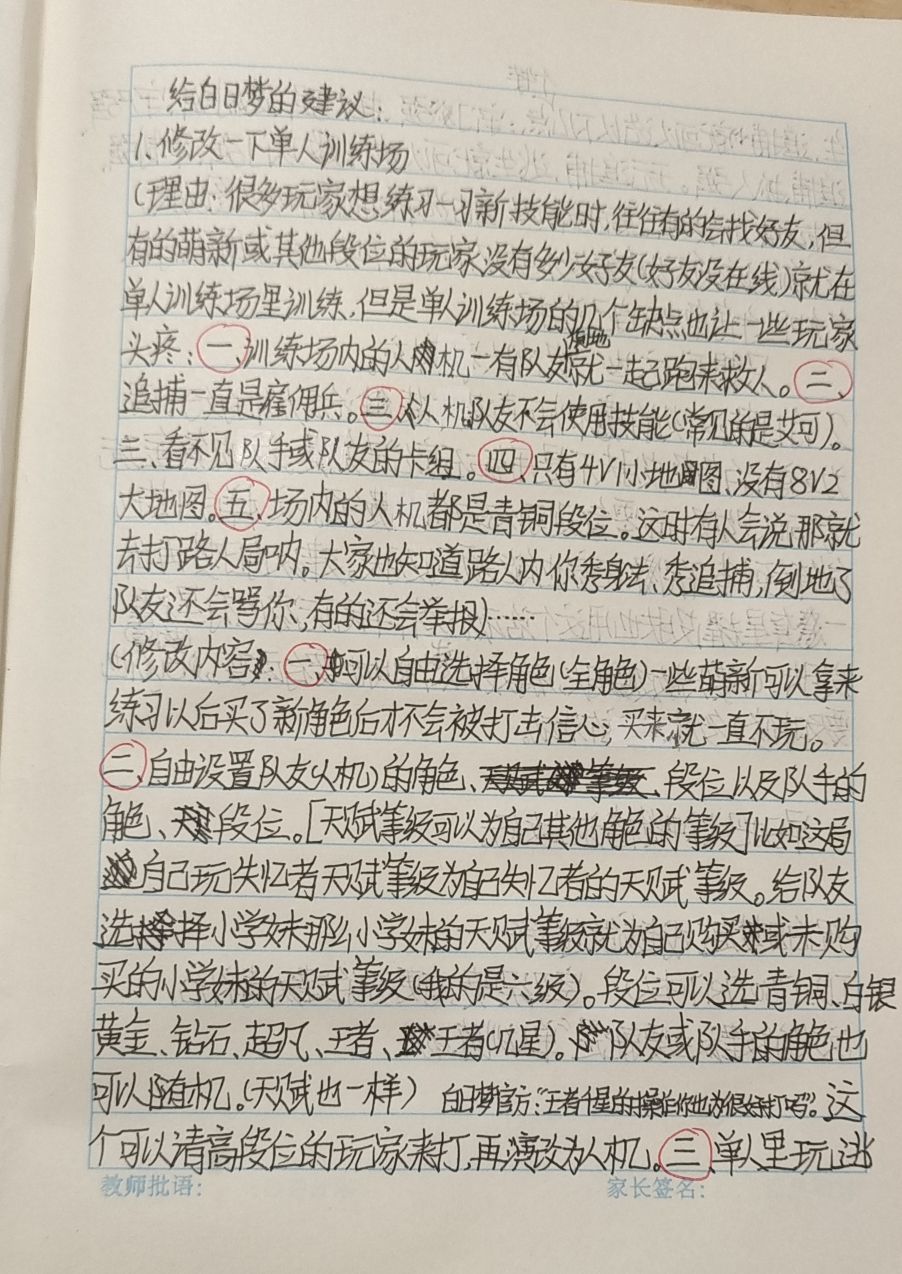 给白日梦的建议:
1、修改一下单人训练场
(理由:很多玩家想练习一习新技能时,往往有的会找好友,但
有的萌新或其他段位的玩家没有多少好友(好友没在线)就在
单人训练场里训练,但是单人训练场的几个缺点也让一些玩家
头疼:一、训练场内的人机一有队友倒地就一起跑来救人。二、
追捕一直是雇佣兵。三、人机队友不会使用技能(常见的是艾可)。
三、看不见队手或队友的卡组。四、只有4V1小地图、没有8V2
大地图。五、场内的人机都是青铜段位。这时有人会说那就
去打路人局呐。大家也知道路人内你秀身法、秀追捕,倒地了
队友还会骂你,有的还会举报)……
(修改内容):一、可以自由选择角色(全角色)一些萌新可以拿来
练习以后买了新角色后才不会被打击信心,买来就一直不玩。
二、自由设置队友(人机)的角色、段位以及队手的
角色、段位。[天赋等级可以为自己其他角色的等级]比如这局
自己玩失忆者天赋等级为自己失忆者的天赋等级。给队友
选择小学妹那么小学妹的天赋等级就为自己购买或未购
买的小学妹的天赋等级(我的是六级)。段位可以选青铜、白银
黄金、钻石、超凡、王者、王者(几星)。队友或队手的角色也
可以随机。(天赋也一样) 白日梦官方:“王者千星的操作你也为很好打吗”。这
个可以请高段位的玩家来打,再演改为人机。三、单人里玩逃
教师批语:
家长签名: